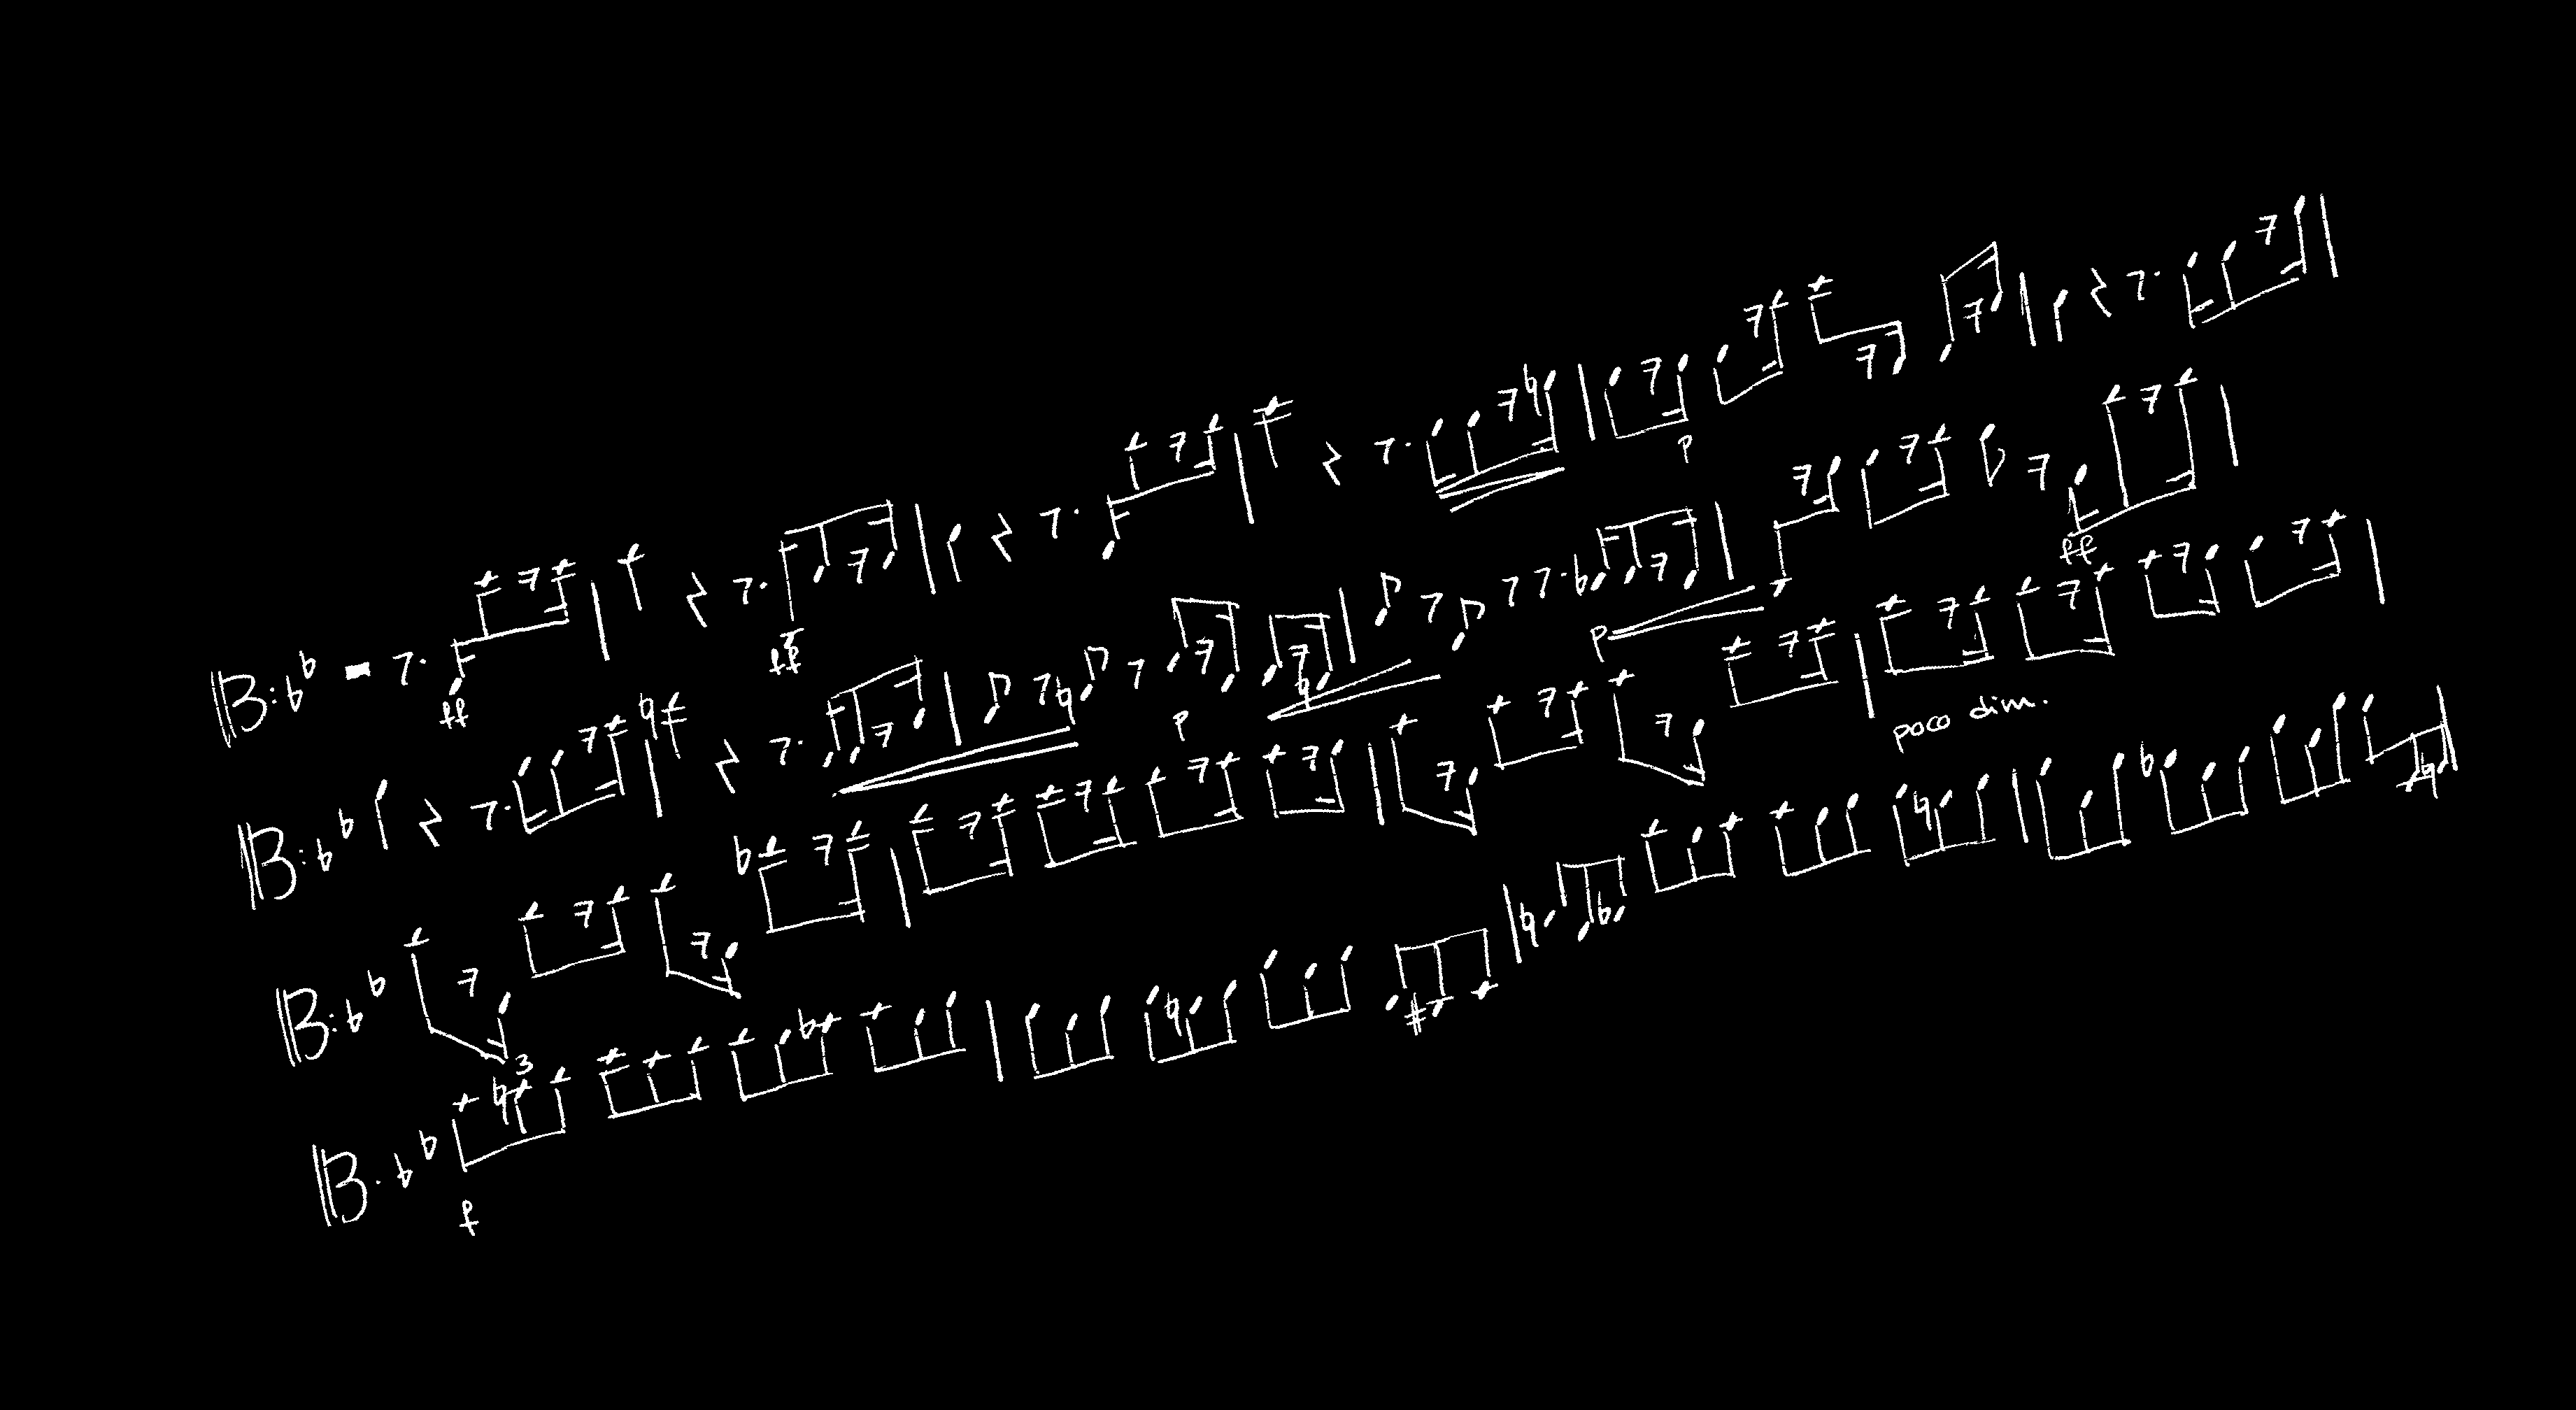 ff ff
p
p p ff
poco dim.
3
f